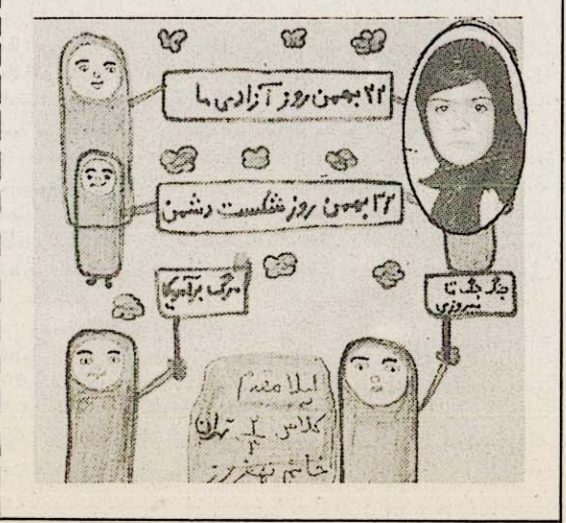 ۲۲ بهمن روز آزادی ما
۲۲ بهمن روز شکست دشمن
مرگ بر آمریکا
جنگ جنگ تا
پیروزی
لیلا مقدم
کلاس ۲/۳ تهران
خانم